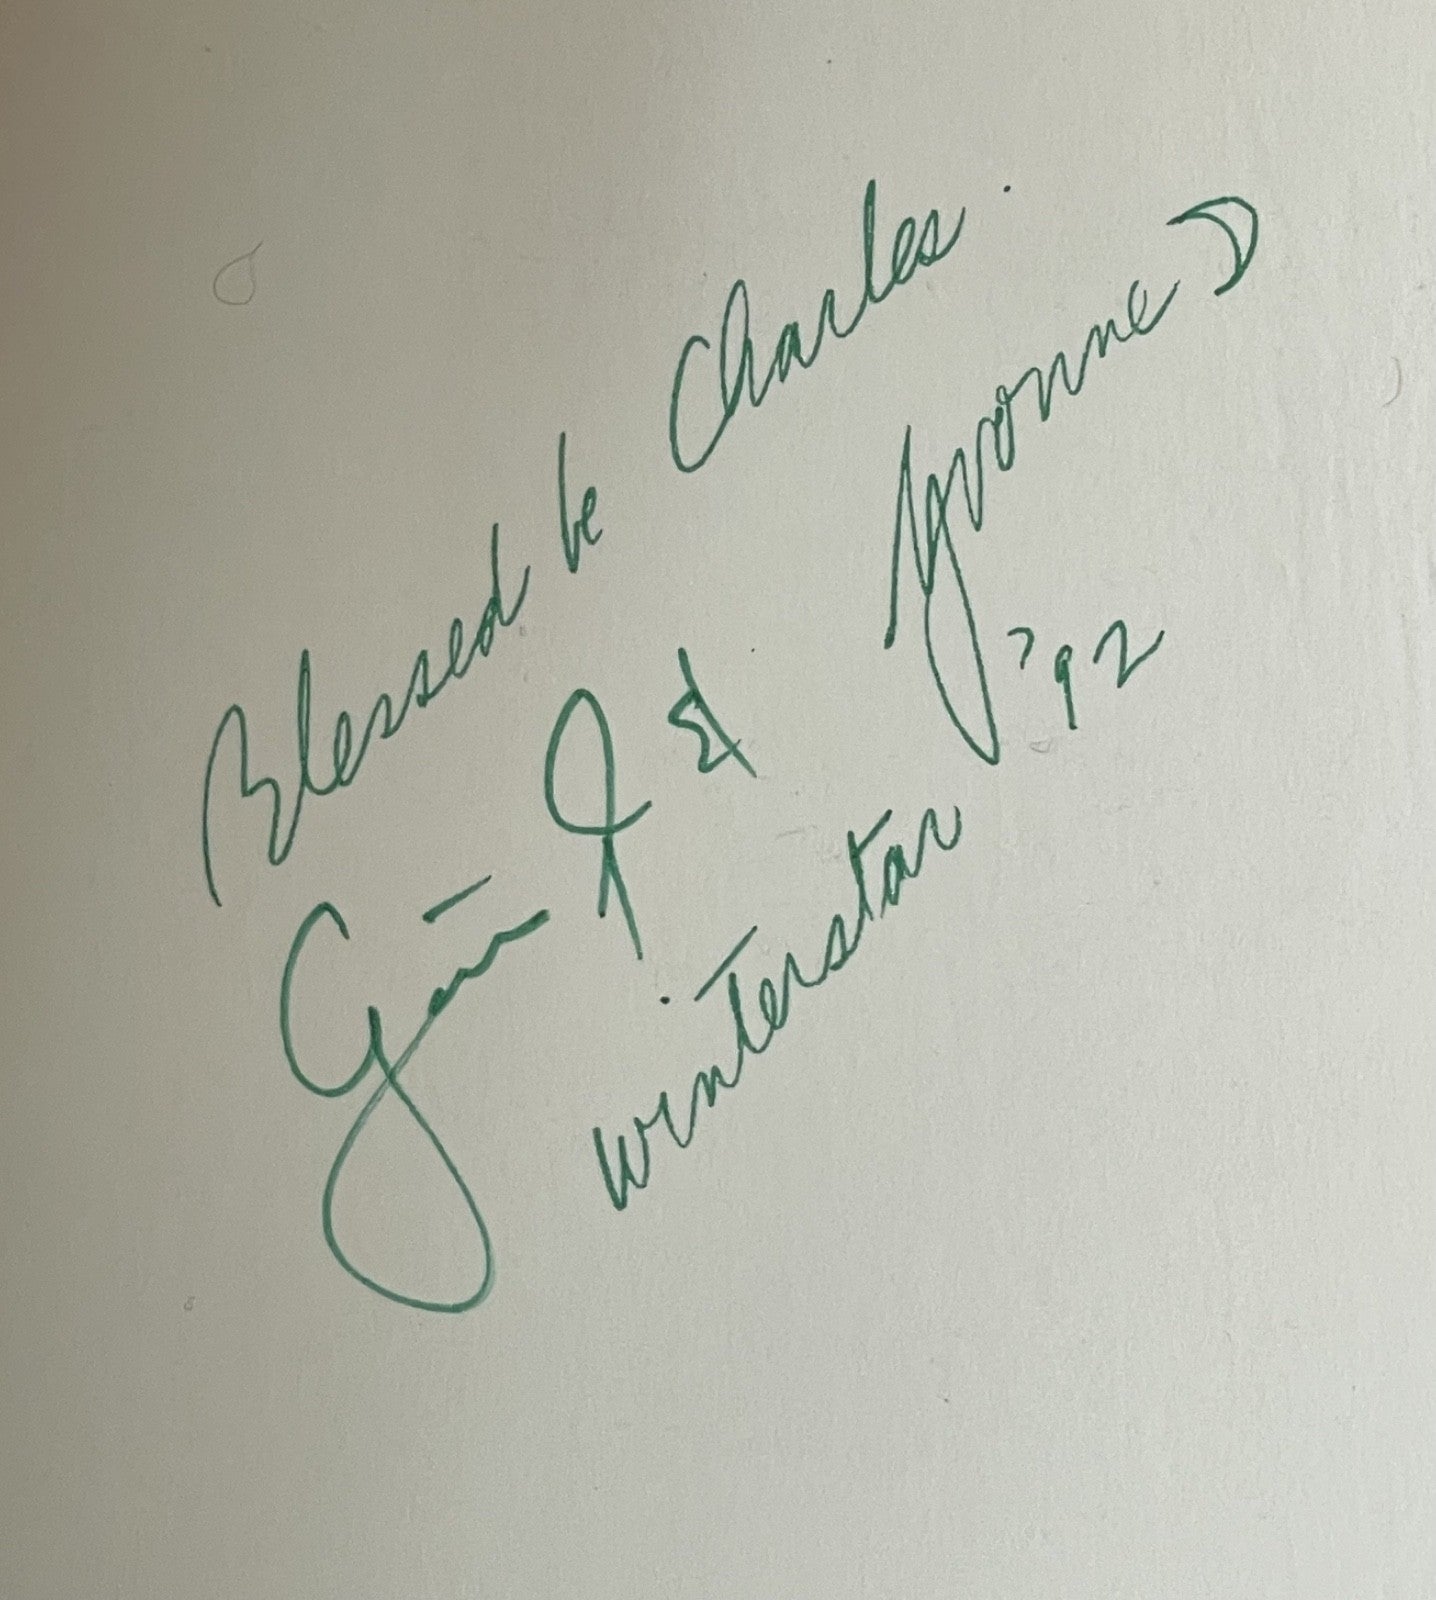 Blessed be Charles.
Gavin & Yvonne
Winterstar '92